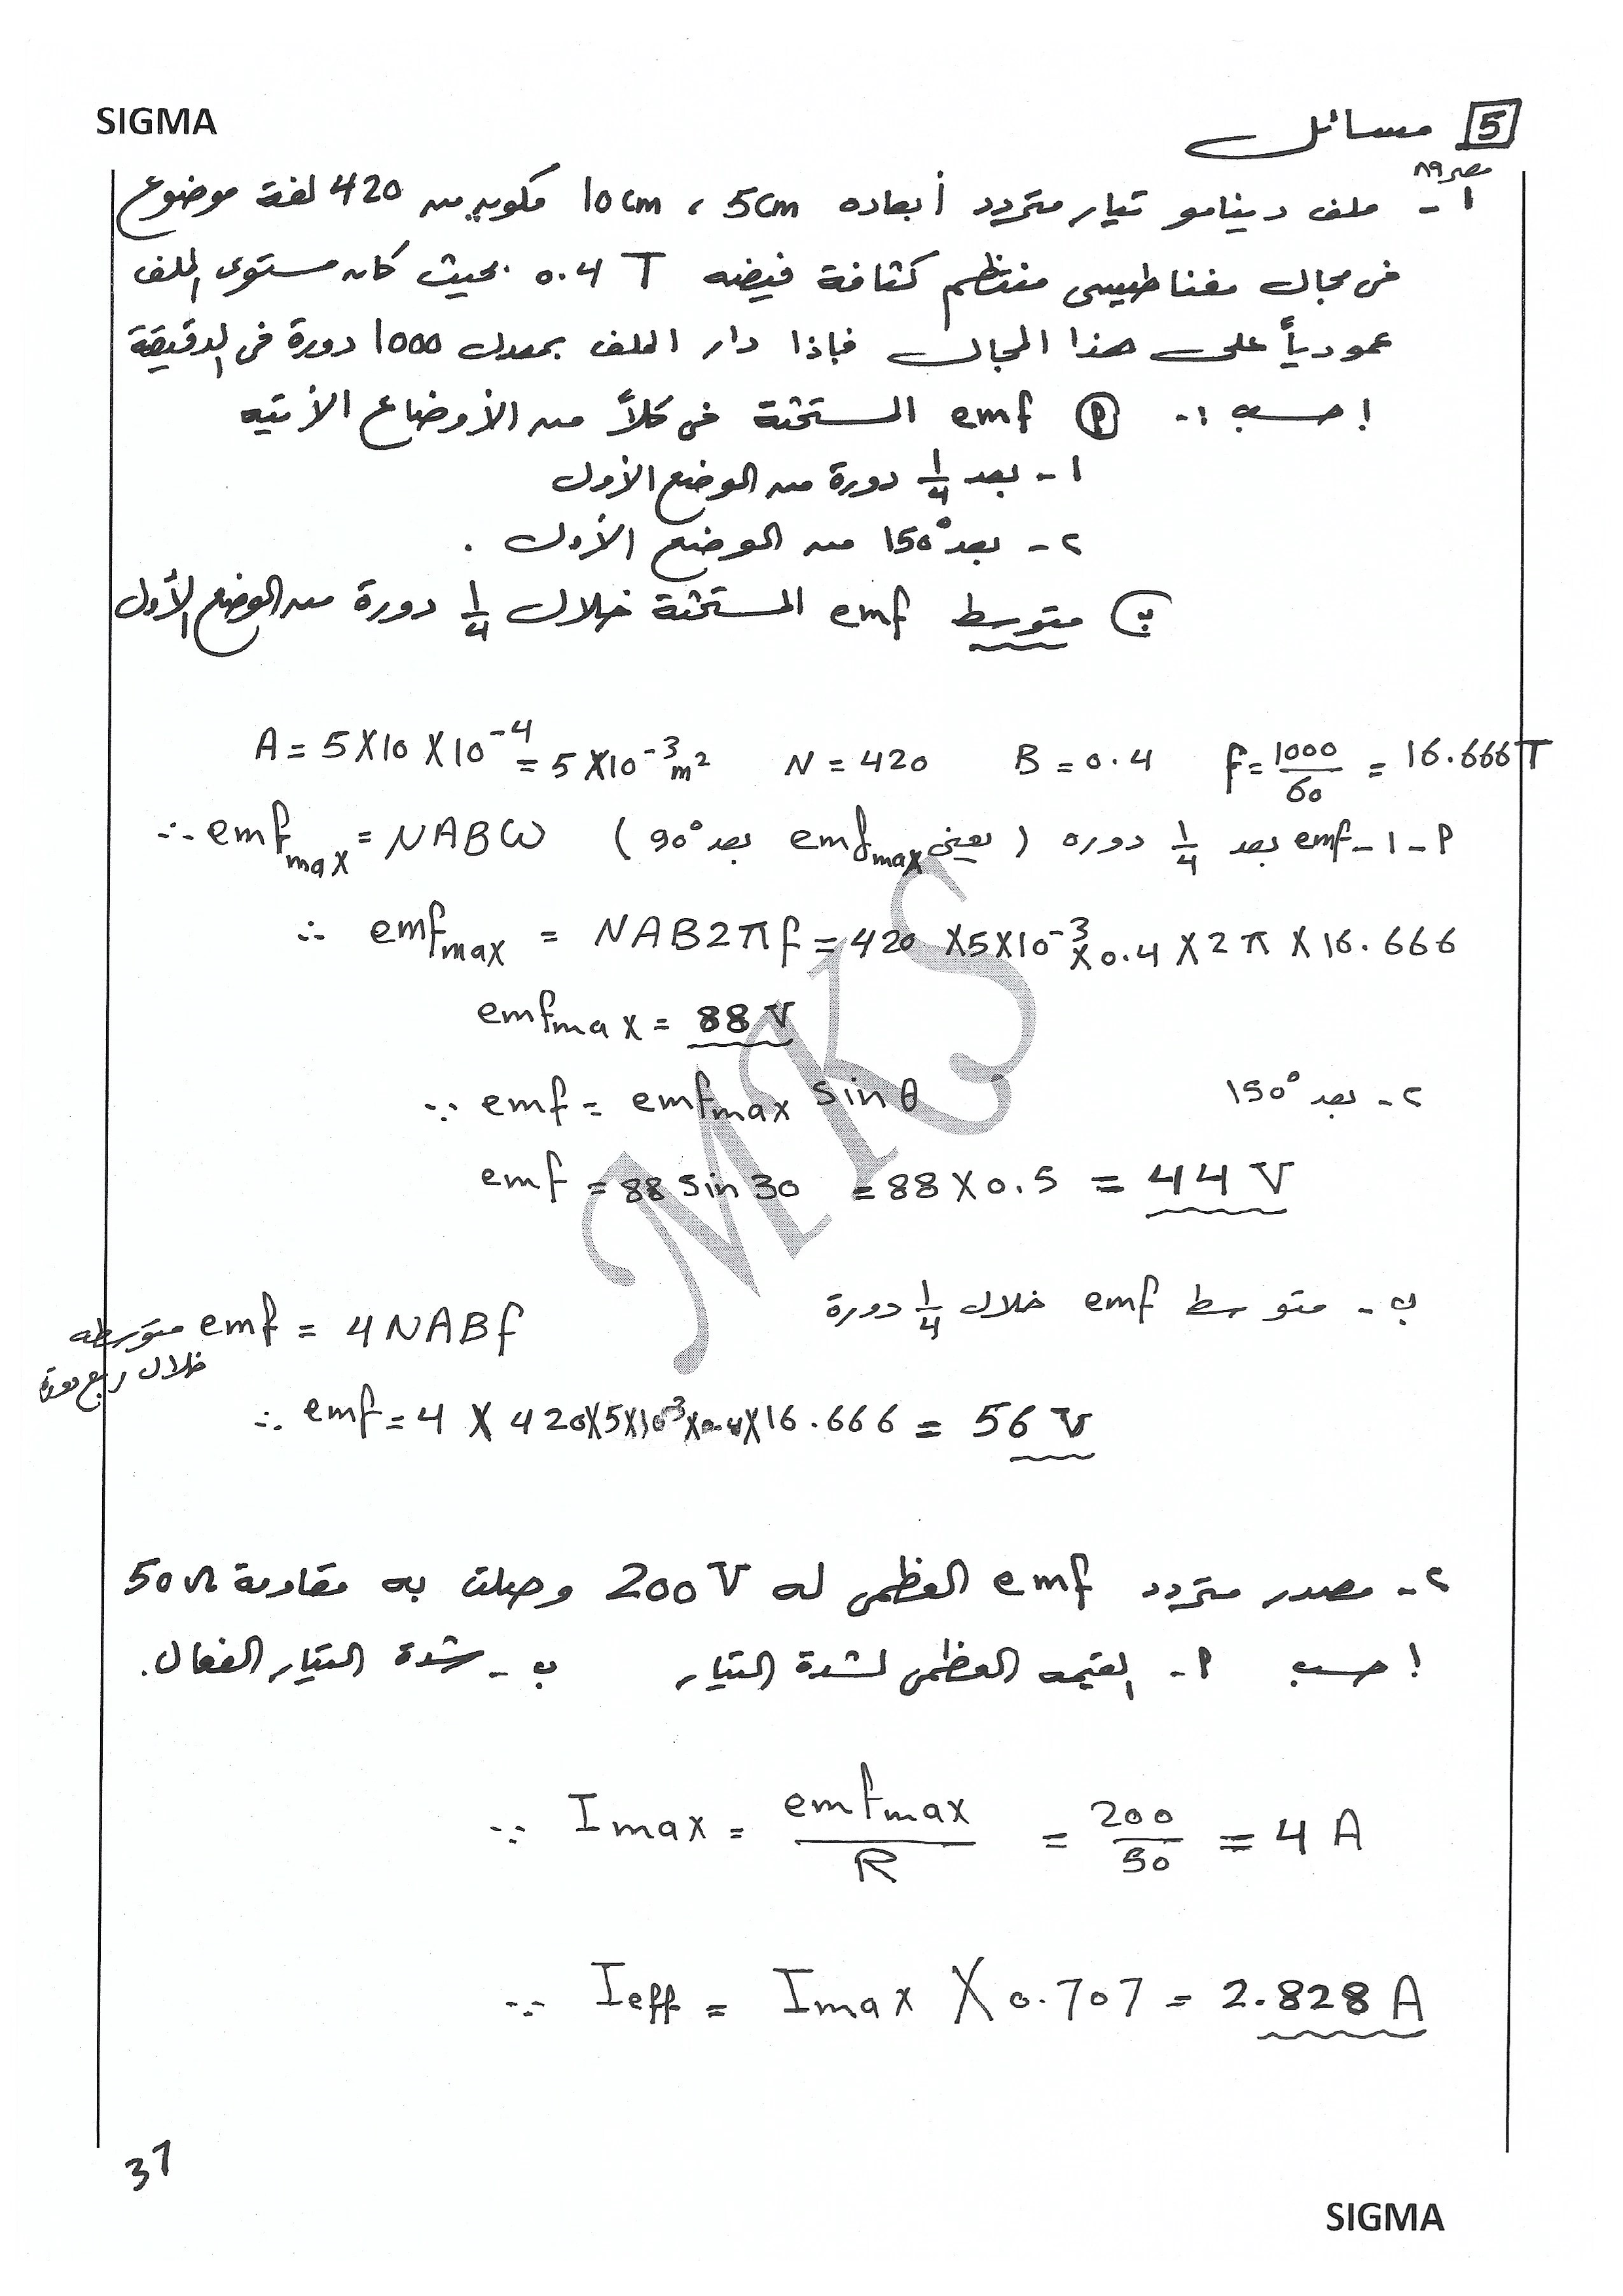 SIGMA
5 مسائل
مصر ٨٩
١- ملف دينامو تيار متردد أبعاده 5cm ، 10cm مكون من 420 لفة موضوع
فى مجال مغناطيسى منتظم كثافة فيضه 0.4 T بحيث كان مستوى الملف
عمودياً على هذا المجال فإذا دار الملف بمعدل 1000 دورة فى الدقيقة
احسب :- أ emf المستحثة فى كلاً من الأوضاع الأتيه
١- بعد 1/4 دورة من الوضع الأول
٢- بعد 150° من الوضع الأول .
ب متوسط emf المستحثة خلال 1/4 دورة من الوضع الأول
A = 5 X 10 X 10⁻⁴ = 5 X 10⁻³ m² N = 420 B = 0.4 f = 1000/60 = 16.666 T
أ - ١ - emf بعد 1/4 دوره ( يعنى emf max بعد 90° ) ∴ emf max = NABω
∴ emf max = NAB2πf = 420 X 5 X 10⁻³ X 0.4 X 2π X 16.666
emf max = 88 V
٢- بعد 150° ∵ emf = emf max sin θ
emf = 88 sin 30 = 88 X 0.5 = 44 V
ب - متوسط emf خلال 1/4 دورة
emf متوسطه خلال ربع دورة = 4NABf
∴ emf = 4 X 420 X 5 X 10⁻³ X 0.4 X 16.666 = 56 V
٢- مصدر متردد emf العظمى له 200 V وصلت به مقاومة 50 Ω
احسب أ- القيمه العظمى لشدة التيار ب- شدة التيار الفعال.
∵ I max = emf max / R = 200/50 = 4 A
∵ I eff = I max X 0.707 = 2.828 A
MKS
37
SIGMA